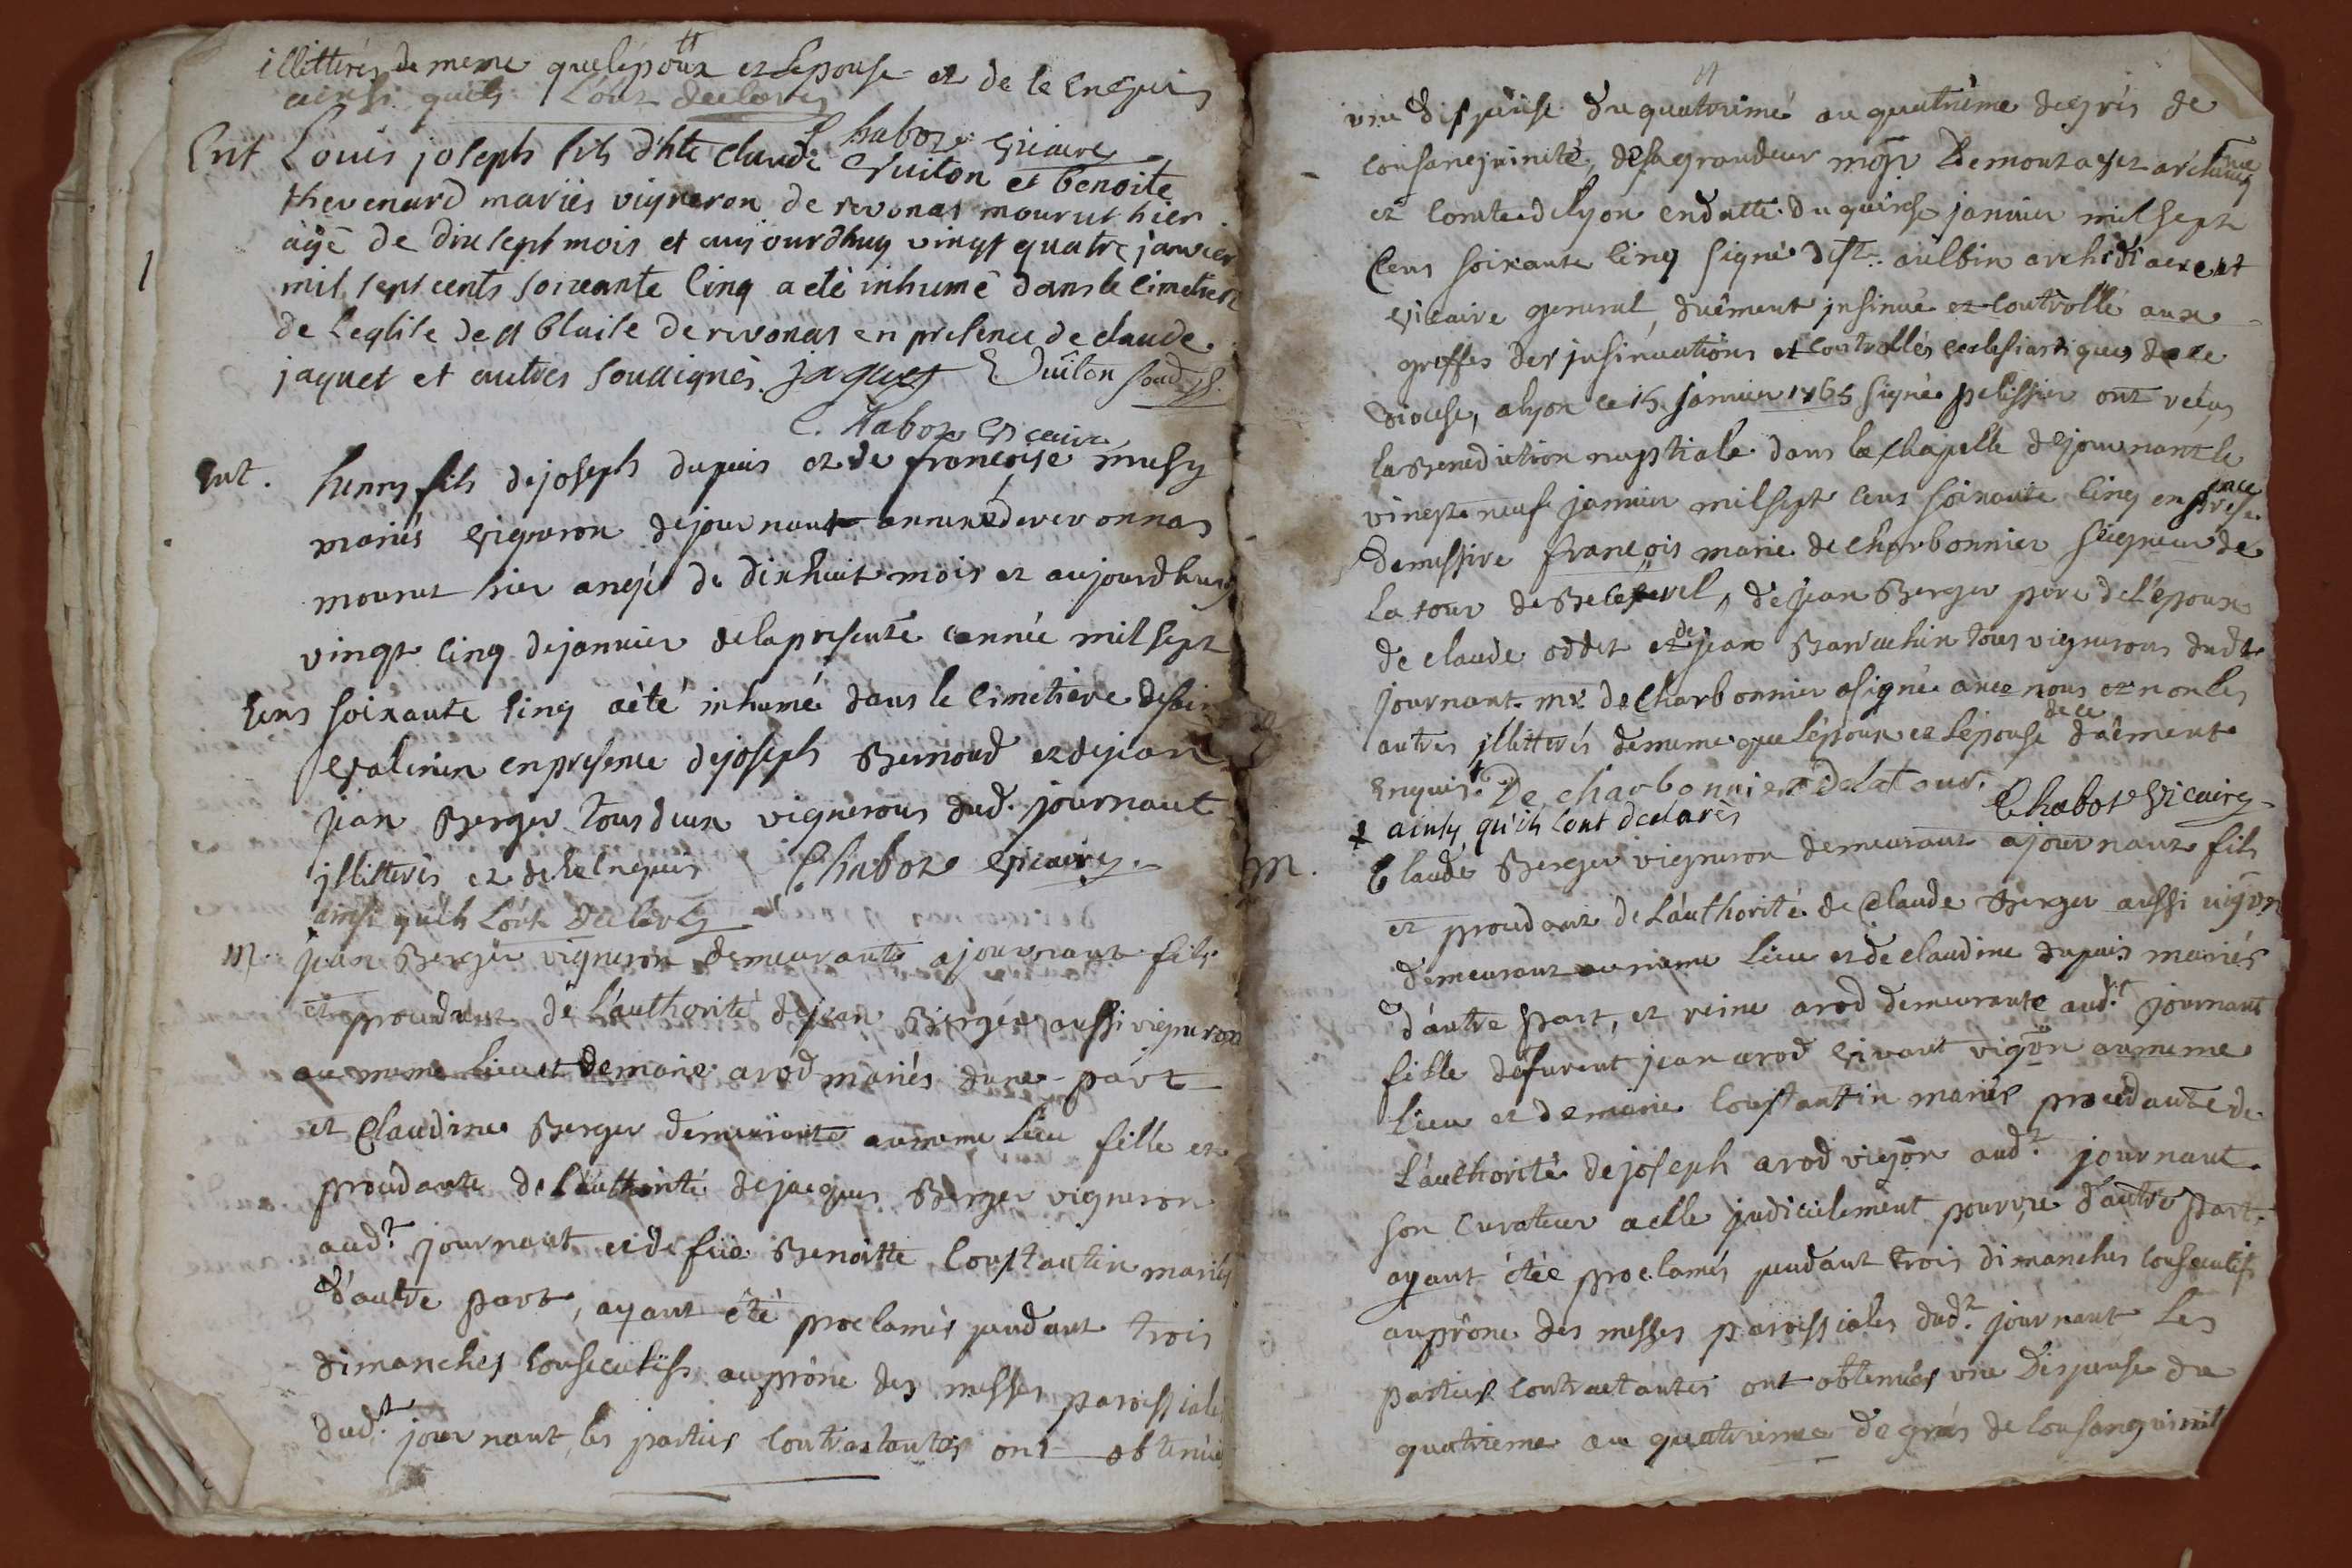 illitterés de meme que lépoux et Lepouse et de ce Enquis
ainsi quils L'ont declarés
Chabot Vicaire
Ent Louis joseph fils d'hte claude Vuiton et benoite
thevenard mariés vigneron de revonas mourut hier
agé de dix sept mois et aujourdhuy vingt quatre janvier
mil sept cents soixante Cinq a eté inhumé dans le Cimetiere
de Leglise de st blaise de revonas en presence de claude
jaquet et autres soussignés jaquet Vuiton
C. Habot Vicaire
Ent. henry fils de joseph dupuis et de françoise musy
mariés vigneron de journant annexe de revonnas
mourut hier angé de dixhuit mois et aujourdhuy
vingt cinq de janvier de la presente année mil sept
Cens soixante Cinq a été inhumé dans le Cimetiere de sain
Valerien en presence de joseph Bernoud et de jean
jean Berger tous deux vignerons dud. journant
jllitterés et de ce Enquis Chabot Vicaire
ainsi quils L'ont declarés
M. jean Berger vigneron demeurant a journant fils
et procedant de L'authorité de jean Berger aussi vigneron
au meme lieu et de marie arod mariés dune part
et Claudine Berger demeurante au meme Lieu fille et
procedante de L'authorité de jacques Berger vigneron
aud.t journant et de fue Benoitte Constantin mariés
d'autre part, ayant été proclamés pendant trois
dimanches consecutifs au prône des messes paroissiales
dud.t journant, les parties contractantes ont obtenües
une dispense du quatrieme au quatrieme degrés de
consanguinité, de sa grandeur mgr De montazet archeveq
et Comte de lyon en datte du quinse janvier mil sept
Cens soixante Cinq signé de st aulbin archidiacre et
vicaire general, duêment jnsinué et controllé aux
greffes des jnsinuations et controlles ecclesiastiques de ce
diocese, a lyon ce 15 janvier 1765 signé pelissier ont reçus
la Benediction nuptiale dans la chapelle de journant le
vingt neuf janvier mil sept cens soixante Cinq en presence
de messire françois marie de charbonnier seigneur de
la tour de , de jean Berger pere de l'époux
de claude oddet et de jean tous vignerons dudt
journant. mr. de Charbonnier a signé avec nous et non les
autres jllitterés de meme que L'époux et L'épouse de ce duêment
Enquis. De charbonnier delatour.
Chabot Vicaire
ainsy qu'ils L'ont declarés
M. Claude Berger vigneron demeurant a journant fils
et procedant de L'authorité de Claude Berger aussi vigron
demeurant au meme Lieu et de claudine dupuis mariés
d'autre part, et reine arod demeurante aud.t journant
fille de furent jean arod vivant vigron au meme
Lieu et de marie Constantin mariés procedante de
L'authorité de joseph arod vigron aud.t journant
son Curateur a elle judicielement pourvu d'autre part.
ayant étée proclamés pendant trois dimanches consecutifs
au prône des messes paroissiales dud.t journant Les
parties contractantes ont obtenües une Dispense du
quatrieme au quatrieme degrés de consanguinité